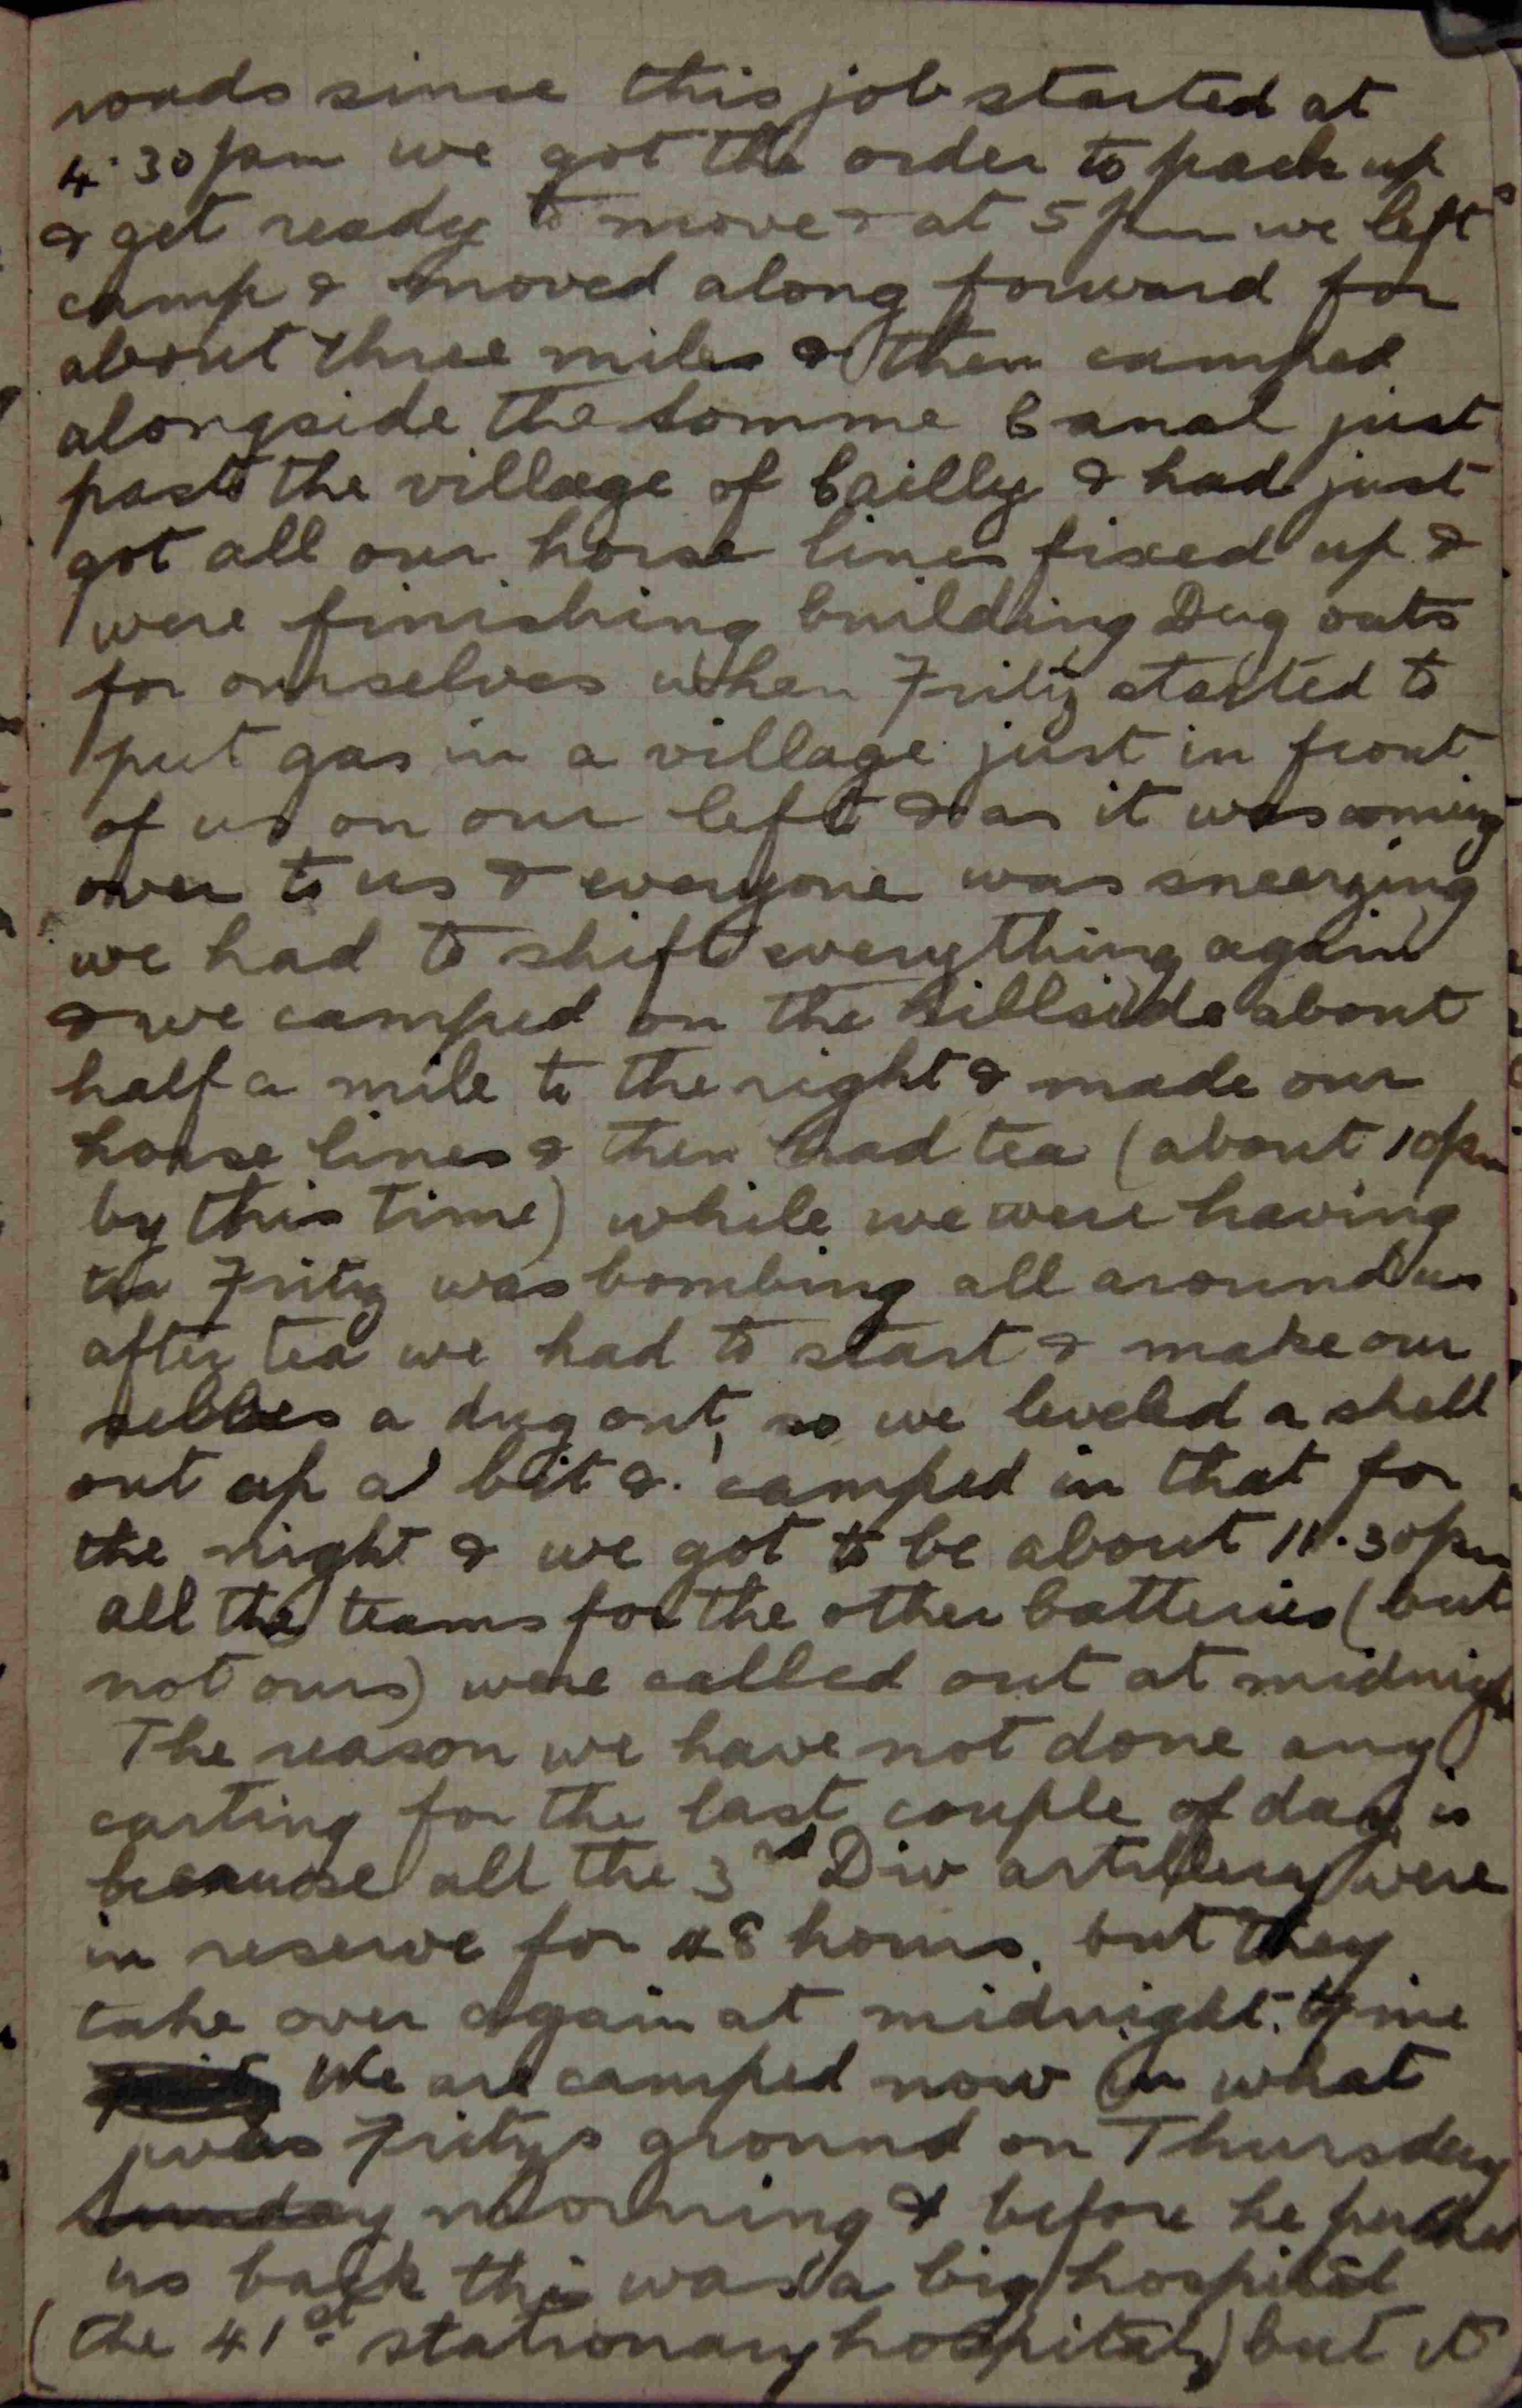 roads since this job started at
4.30 pm we got the order to pack up
& get ready to move & at 5 pm we left
camp & moved along forward for
about three miles & then camped
alongside the Somme Canal just
past the village of Cailly & had just
got all our horse lines fixed up &
were finishing building Dug outs
for ourselves when Fritz started to
put gas in a village just in front
of us on our left & as it was coming
over to us & everyone was sneezing
we had to shift everything again
& we camped on the hillside about
half a mile to the right & made our
horse lines & then had tea (about 10 pm
by this time) while we were having
tea Fritz was bombing all around us
after tea we had to start & make our
selves a dug out, so we leveled a shell
out up a bit & camped in that for
the night & we got to be about 11.30 pm
all the teams for the other batteries (but
not ours) were called out at midnight
The reason we have not done any
carting for the last couple of day is
because all the 3rd Div artillery were
in reserve for 48 hours, but they
take over again at midnight. time
We are camped now in what
was Fritzs ground on Thursday
Sunday morning & before he pushed
us back this was a big hospital
(the 41st stationary hospital) but it